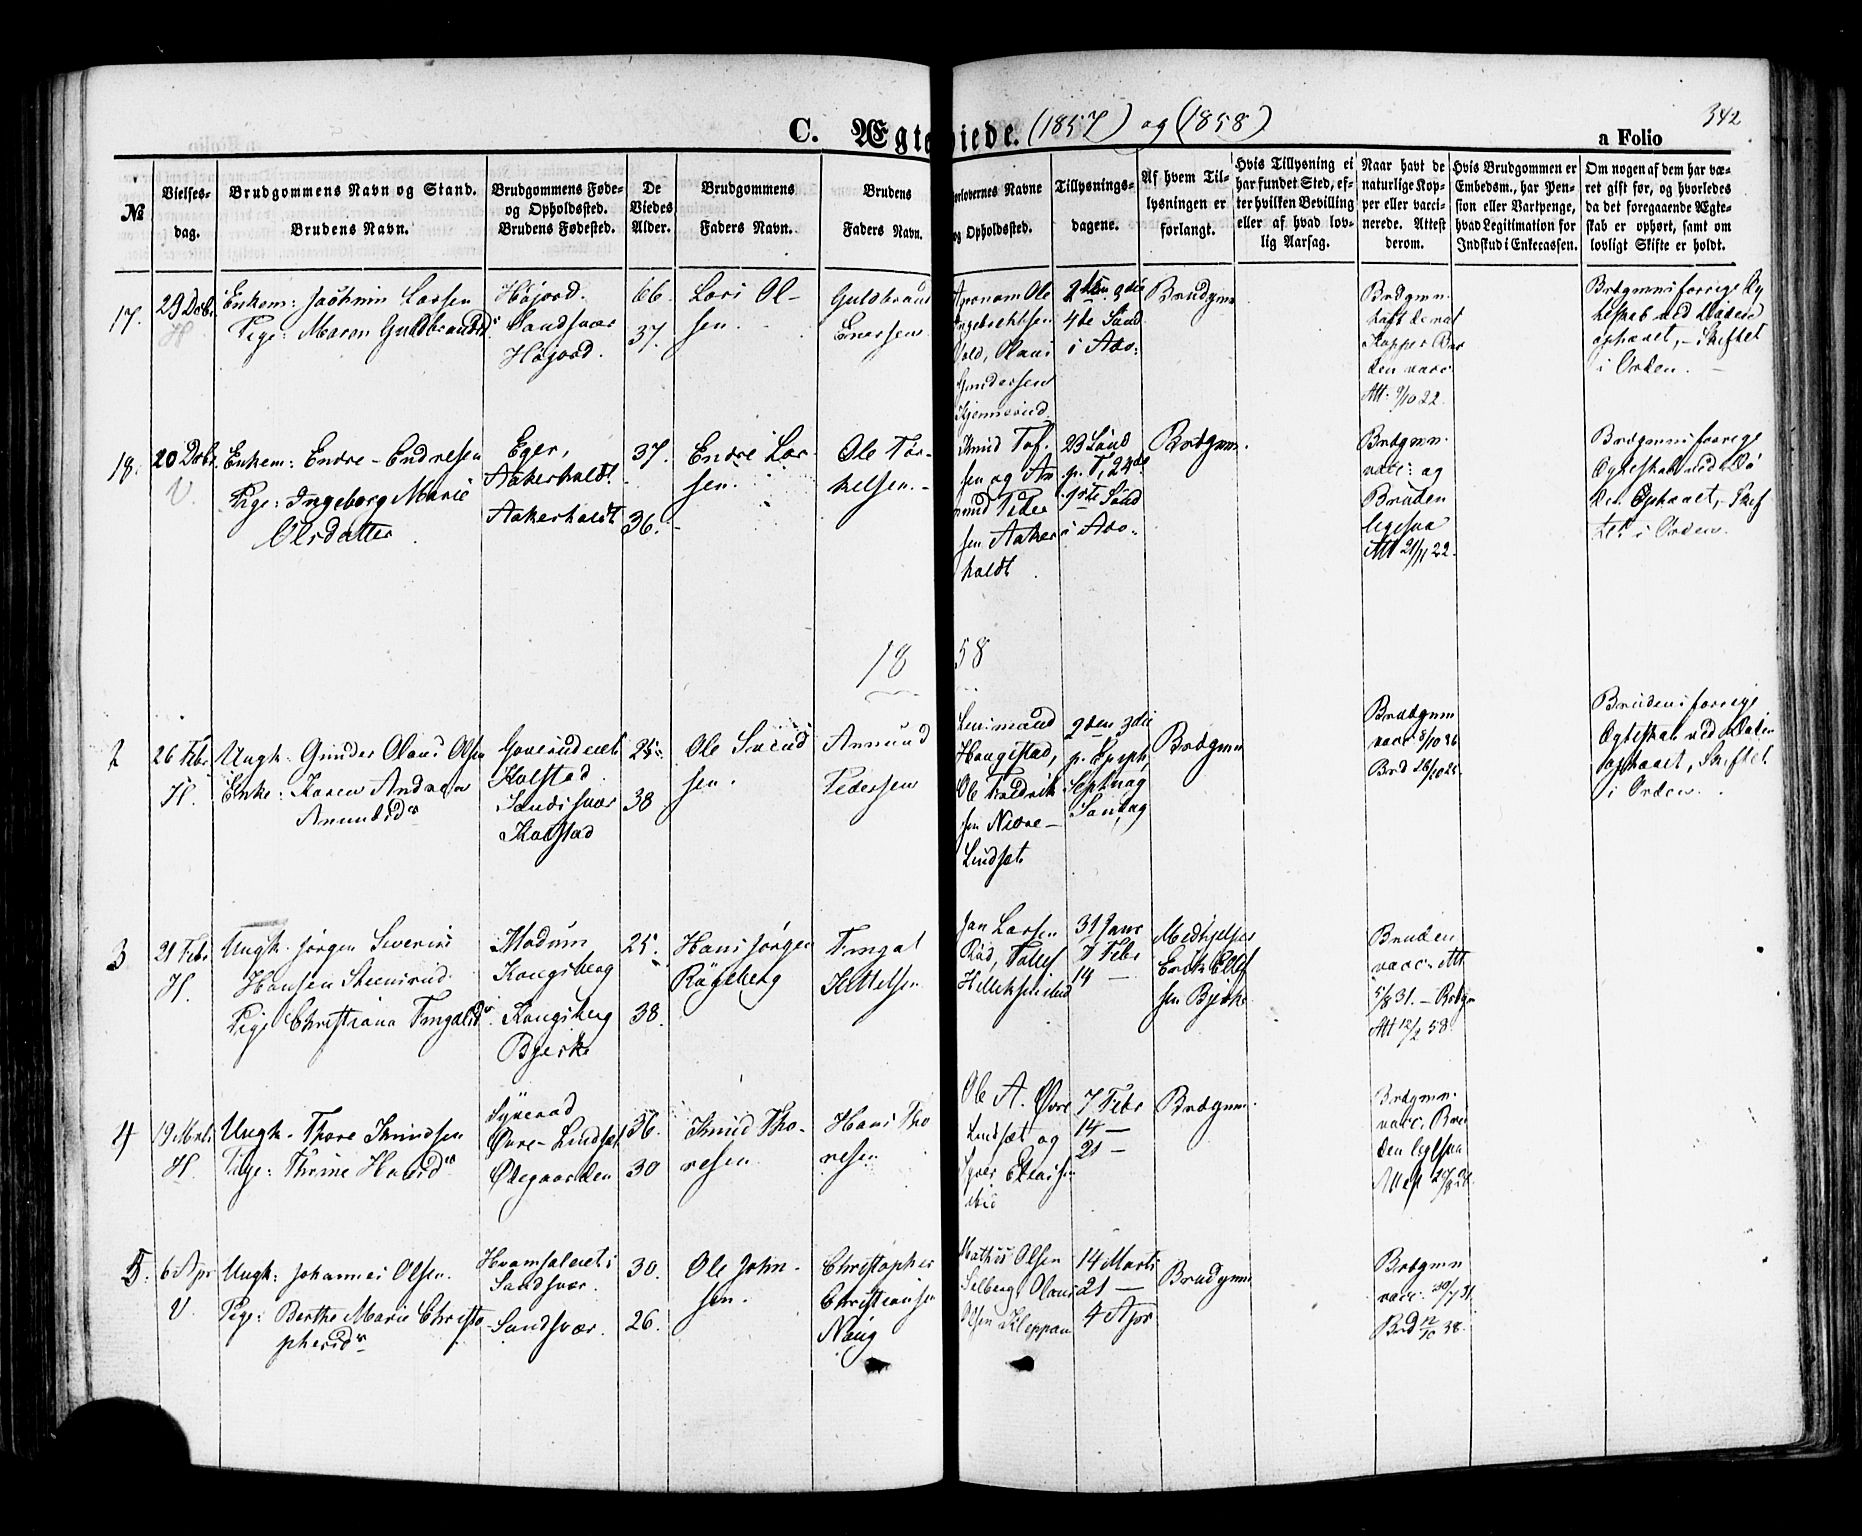 C. Ægteviede. (1857) og (1858)
a Folio 342
No
Vielses-
dag.
Brudgommens Navn og Stand.
Brudens Navn.
Brudgommens Føde-
og Opholdssted.
Brudens Fødested.
De
Viedes
Alder.
Brudgommens
Faders Navn.
Brudens
Faders Navn.
Forlovernes Navne
og Opholdssted.
Tillysnings-
dagene.
Af hvem Til-
lysningen er
forlangt.
Hvis Tillysning ei
har fundet Sted, ef-
ter hvilken Bevilling
eller af hvad lov-
lig Aarsag.
Naar havt de
naturlige Kop-
per eller vacci-
nerede. Attest
derom.
Hvis Brudgommen er
Embedsm., har Pen-
sion eller Vartpenge,
hvad Legitimation for
Indskud i Enkecassen.
Om nogen af dem har væ-
ret gift før, og hvorledes
da det foregaaende Ægte-
skab er ophørt, samt om
lovligt Skifte er holdt.
17.
29 Decbr
H
Enkem: Jochim Larsen
Pige: Maren Guldbrandsdr
Højord.
Sandsvær
Højord.
66.
37.
Lars Ol-
sen.
Guldbrand
Enersen
Ole
Olaus
Gundersen
2den 3die
4de Sönd
i Adv.
Brudgm
Brdgmn.
haft de nat
Kopper Bru
den vacc
Att. 9/10 22.
Brdgmns forrige Æg
teskab ved Döden
ophævet, - Skiftet
i Orden. -
18.
20 Decbr
V.
Enkem: Endre Endresen
Pige: Ingeborg Marie
Olsdatter
Eger,
Aakerholdt
Aakerholdt
37.
36.
Endre Lar
sen.
Ole Tor-
kelsen.
Knud Tof
sen og Am
mund Peder
sen Aaker
holdt
23 Sönd
p. T, 24de
1ste Sönd
i Adv.
Brdgmn.
Brdgmn.
vacc: og
Bruden
ligesaa
Att 21/11 22.
Brdgmns forrige
Ægteskab ved Dö
den Ophævet, - Skif
tet i Orden.
1858
2
26 Febr
H.
Ungk. Gunder Olaus Olsen
Enke: Karen Andrea
Amundsdr
Goverudeiet
Kolstad
Sandsvær
Kolstad
25.
38
Ole Svend
sen.
Amund
Pedersen
Lensmand
Haugestad,
Ole Fredrik
sen Nedre-
Lindset
2den 3die
p. Epiph,
Septuag
Søndag
Brdgmn
Brudgmn
vacc. 8/10 36
Brudens forrige
Ægteskab ved Döden
ophævet, Skiftet
i Orden.
3
21 Febr
H.
Ungk. Jørgen Severin
Hansen Steensrud
Pige Christiana Tingelsdr
Modum
Kongsberg
Kongsberg
Bjerke
25.
38.
Hans Jörgen
Rögeberg
Tingel
Kittelsen
Jan Larsen
31 Janr
7 Febr
14 -
Medhjelper
Erik Ellef
sen Bjerke
Bruden
vacc. Att
5/8 31. - Brdgm
Att 12/2 58.
4
19 Marts
H.
Ungk. Thore Knudsen
Pige: Thrine Hansdr
Øvre-Lindset
Ødegaarden
36.
30
Knud Tho-
resen
Hans Tho
resen
Ole A. Øvre
Lindset og
7 Febr
14 -
21 -
Brdgmn.
Brdgmn.
vacc. Bru
den ligesaa
5.
6 Apr
V.
Ungk: Johannes Olsen.
Pige: Berthe Marie Christo-
phersdr
Hvamsalveiet i
Sandsvær.
Sandsvær.
30.
26.
Ole John-
sen.
Christopher
Christiansen
Nöug
Mathis Olsen
Selberg Olaus
Olsen Kleppan
14 Marts
21 -
4 Apr
Brudgmn.
Brdgmn
vacc.
Brd 38.